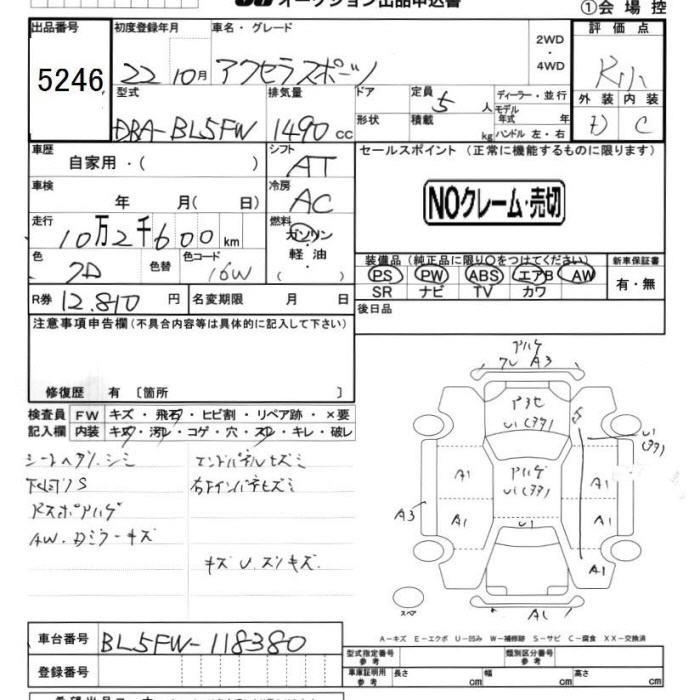 オークション出品申込書
①会場控
出品番号 初度登録年月 車名・グレード 2WD・4WD 評価点
5246 22 10月 アクセラスポーツ
外装 内装
D C
型式 排気量 ドア 定員 5人 ディーラー・並行
モデル年式 年
DBA-BL5FW 1490cc 形状 積載 kg ハンドル 左・右
車歴 自家用・( )
シフト AT
セールスポイント(正常に機能するものに限ります)
車検 年 月( 日)
冷房 AC
NOクレーム・売切
走行 10万2千600km
燃料 ガソリン・軽油( )
色 色替 色コード 16W
装備品(純正品に限り○をつけてください) 新車保証書
PS PW ABS エアB AW 有・無
SR ナビ TV カワ
R券 12.810円 名変期限 月 日
後日品
注意事項申告欄(不具合内容等は具体的に記入して下さい)
修復歴 有〔箇所 〕
検査員記入欄 FW キズ・飛石・ヒビ割・リペア跡・×要
内装 キズ・汚レ・コゲ・穴・スレ・キレ・破レ
シートヘタリ.シミ エンドパネルヒズミ
下廻リS 右Fインパネヒズミ
Rスポアハゲ
AW.Dミラーキズ
キズU.スリキズ
アハゲ
A3
A1
A1
A3
A1
A1
U1
A1
A1
スペア
A-キズ E-エクボ U-凹み W-補修跡 S-サビ C-腐食 XX-交換済
車台番号 BL5FW-118380
型式指定番号 参考 類別区分番号 参考
登録番号
車庫証明用 参考 長さ cm 幅 cm 高さ cm